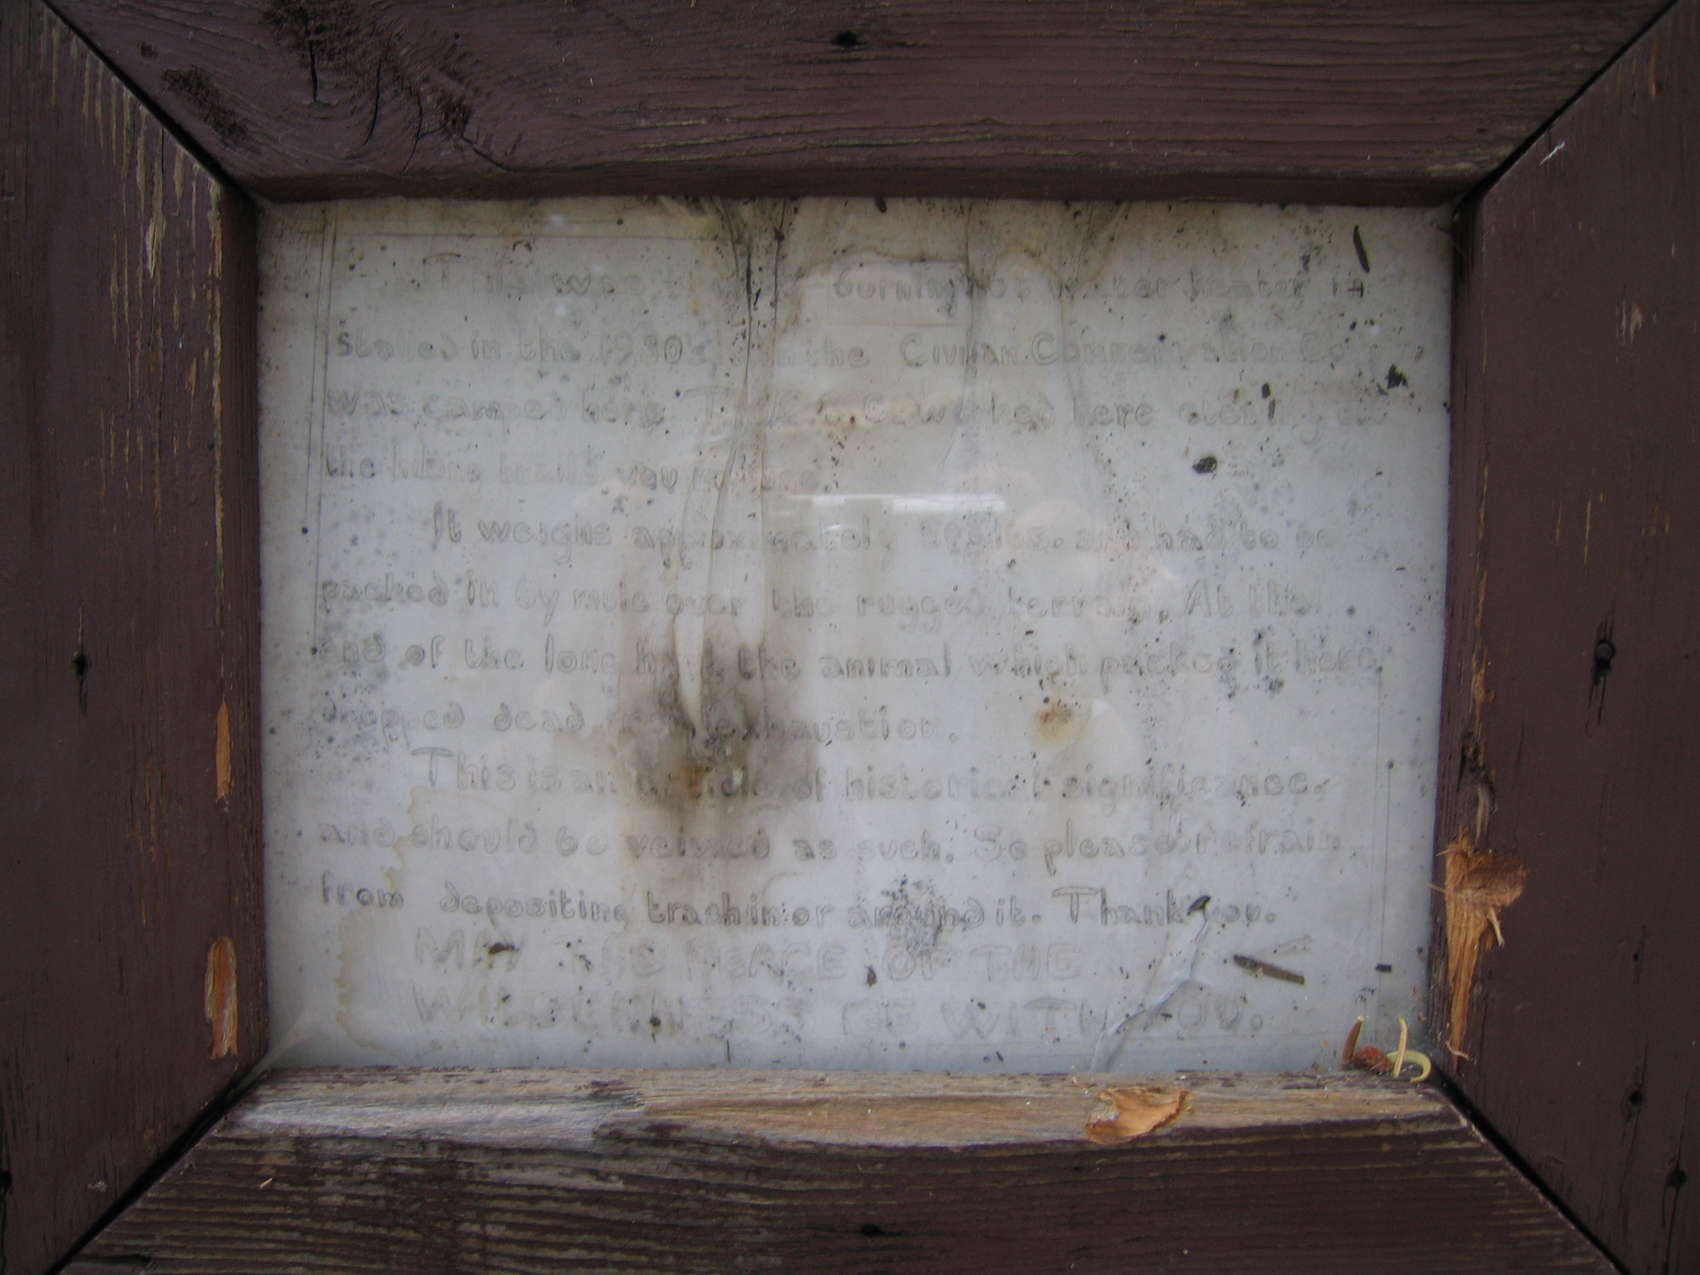 This was burning hot water heater in
stalled in the 1930's, the Civilian Conservation Co
was camped here. The C.C.C. worked here
the hiking trails you
It weighs approximately lbs. and had to be
packed in by mule over the rugged terrain. At the
end of the long haul the animal which packed it here
dropped dead exhaustion.
This is an article of historical significance
and should be as such. So please refrain
from depositing trash in or around it. Thank you.
MAY THE PEACE OF THE
WILDERNESS BE WITH YOU.